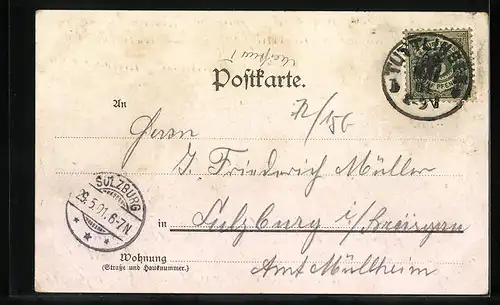 Postkarte.
An
Herrn
J. Friederich Müller
in Sulzburg i/Breisgau
Amt Müllheim
Wohnung
(Straße und Hausnummer.)
SULZBURG
29.5.01.6-7N